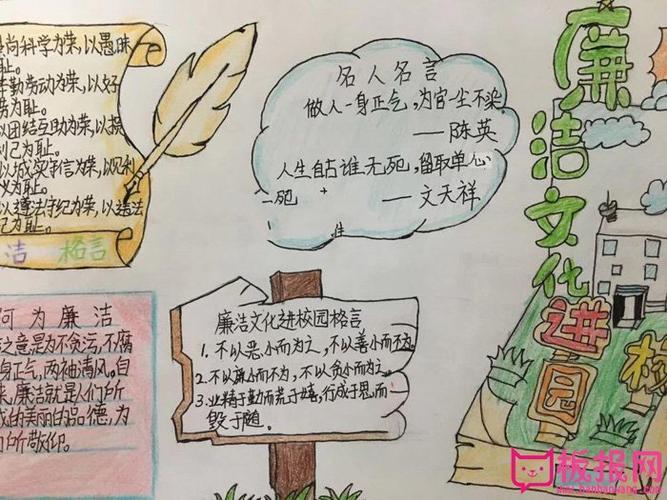 尚科学为荣,以愚昧
耻。
辛勤劳动为荣,以好
劳为耻。
以团结互助为荣,以损
利己为耻。
以诚实守信为荣,以见利
义为耻。
以遵法守纪为荣,以违法
纪为耻。
洁 格言
名人名言
做人一身正气,为官一尘不染
——陈英
人生自古谁无死,留取单心
——文天祥
廉洁文化进校园
何为廉洁
之意是为不贪污,不腐
身正气,两袖清风。自
来,廉洁就是人们所
成的美丽的品德,为
所敬仰。
廉洁文化进校园格言
1.不以恶小而为之,不以善小而不为
2.不以廉小而不为,不以贪小而为之。
3.业精于勤而荒于嬉,行成于思而
毁于随。
板报网